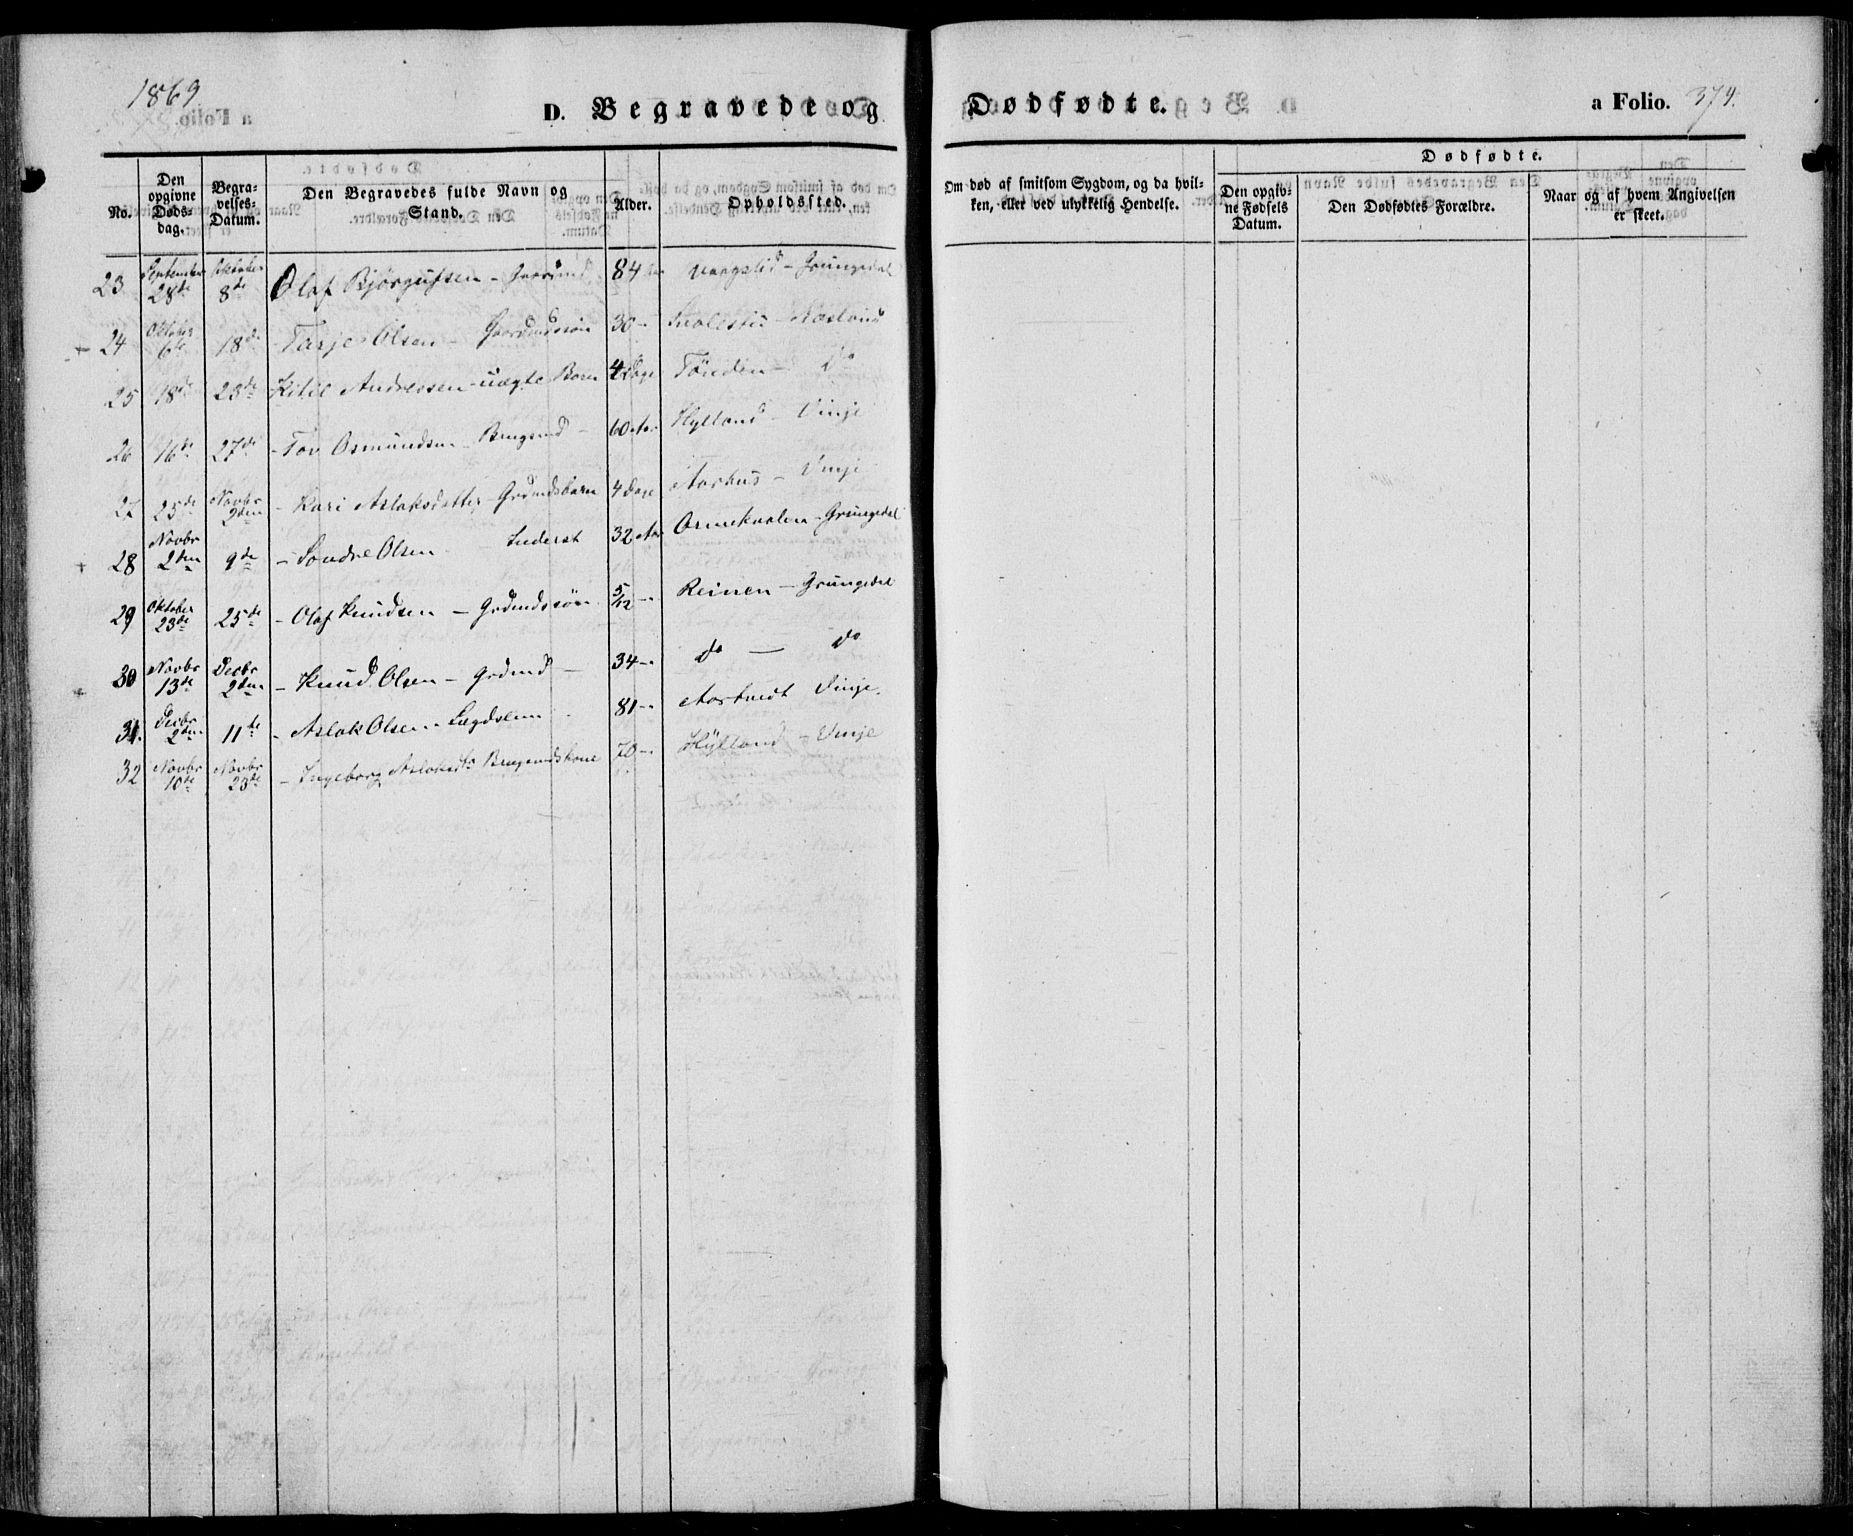 1869
D. Begravede og Dødfødte. a Folio. 374.
No. Den opgivne Døds-dag. Begra-velses-Datum. Den Begravedes fulde Navn og Stand. Alder. Opholdssted. Om død af smitsom Sygdom, og da hvil-ken, eller ved ulykkelig Hendelse. Dødfødte. Den opgiv-ne Fødsels Datum. Den Dødfødtes Forældre. Naar og af hvem Angivelsen er skeet.
23 September 28de Oktober 8de Olaf Bjørgufsen - Gaardmd 84 Aar Vaagslid - Grungedal
24 Oktober 6te 18de Tarje Olsen - Gaardmdssøn 30 -" - Nesland
25 18de 23de Kitil Andreosen - uægte Barn 4 Dage Tønden - Do
26 16de 27de - Tov Osmundsen - Brugsmd - 60 Aar Hylland - Vinje
27 25de Novbr 2den - Kari Aslaksdatter - Grdmdsbarn 4 Dage Aarhus - Vinje
28 Novbr 2den 9de - Sondre Olsen - Inderst 32 Aar Ormekaalen - Grungedal
29 Oktober 23de 25de - Olaf Knudsen - Grdmdssøn 5/12 -" Reinen - Grungedal
30 Novbr 13de Decbr 2den - Knud Olsen - Grdmd - 34 -" Do - Do
31. Decbr 2den 11te - Aslak Olsen - Lægdslem 81 -" Aartvedt Vinje.
32 Novbr 10de Novbr 23de - Ingeborg Aslaksdtr Brugsmdskone 70 -" Hylland - Vinje